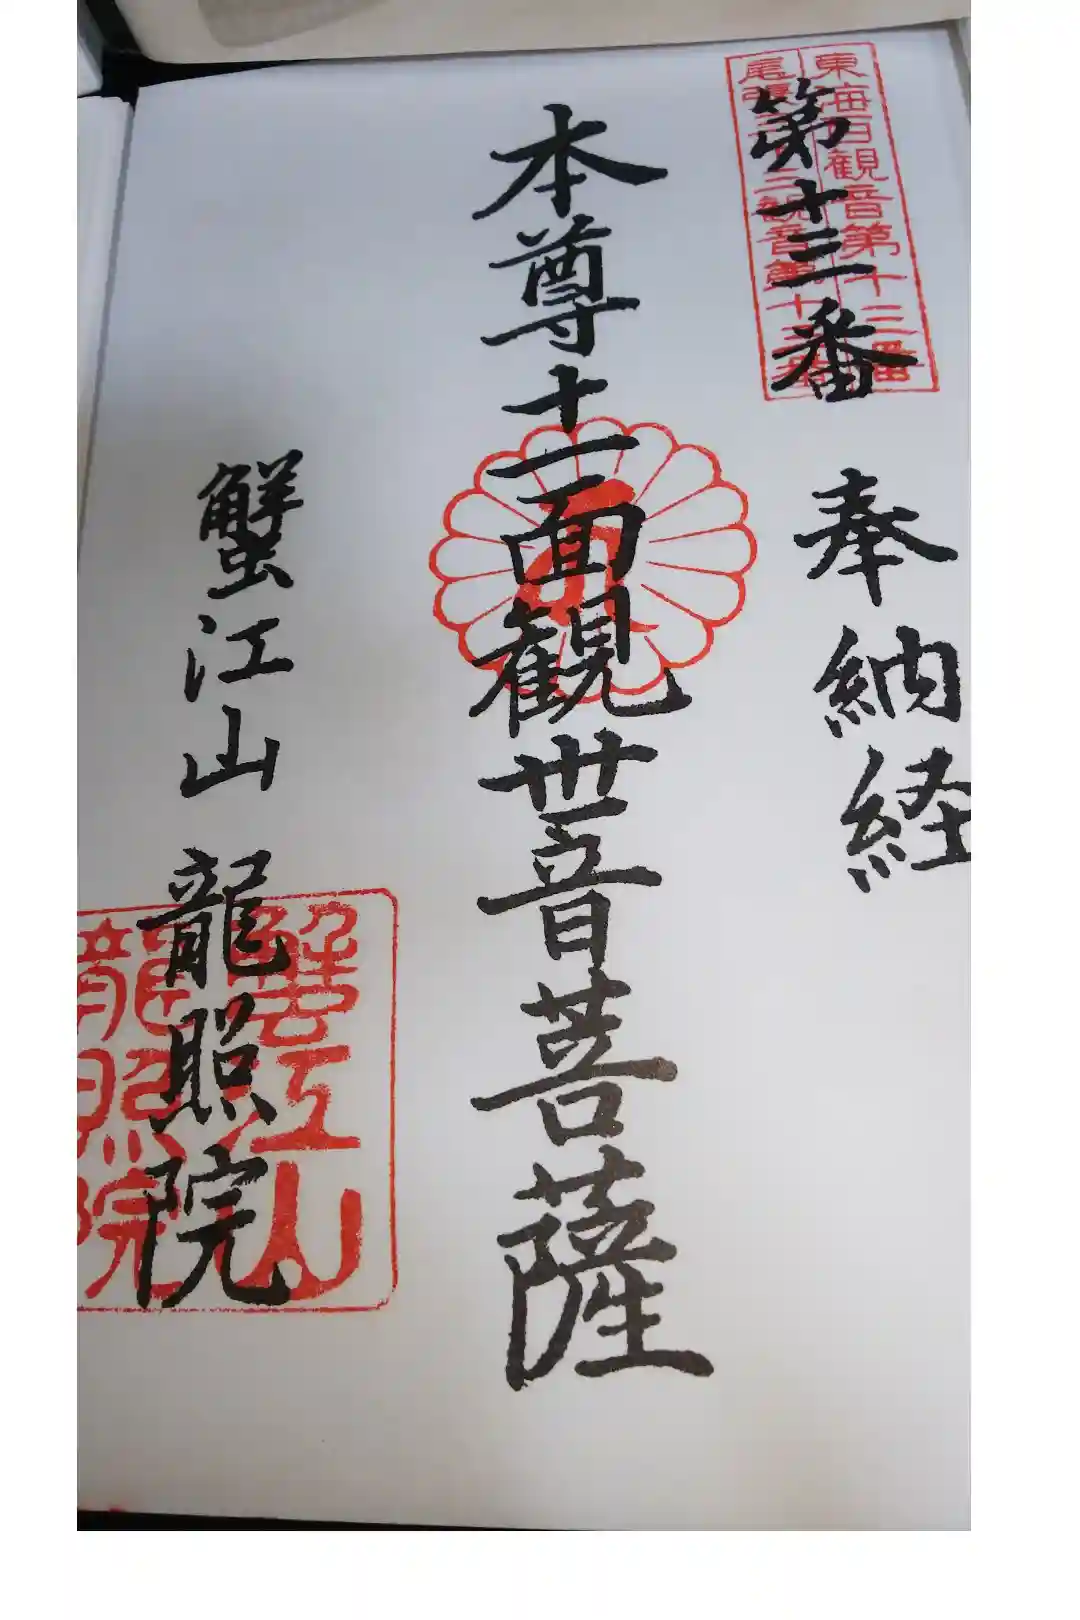 東海百観音第十三番
尾張三十三観音第十三番
第十三番
奉納経
本尊十一面観世音菩薩
蟹江山龍照院
蟹江山
龍照院